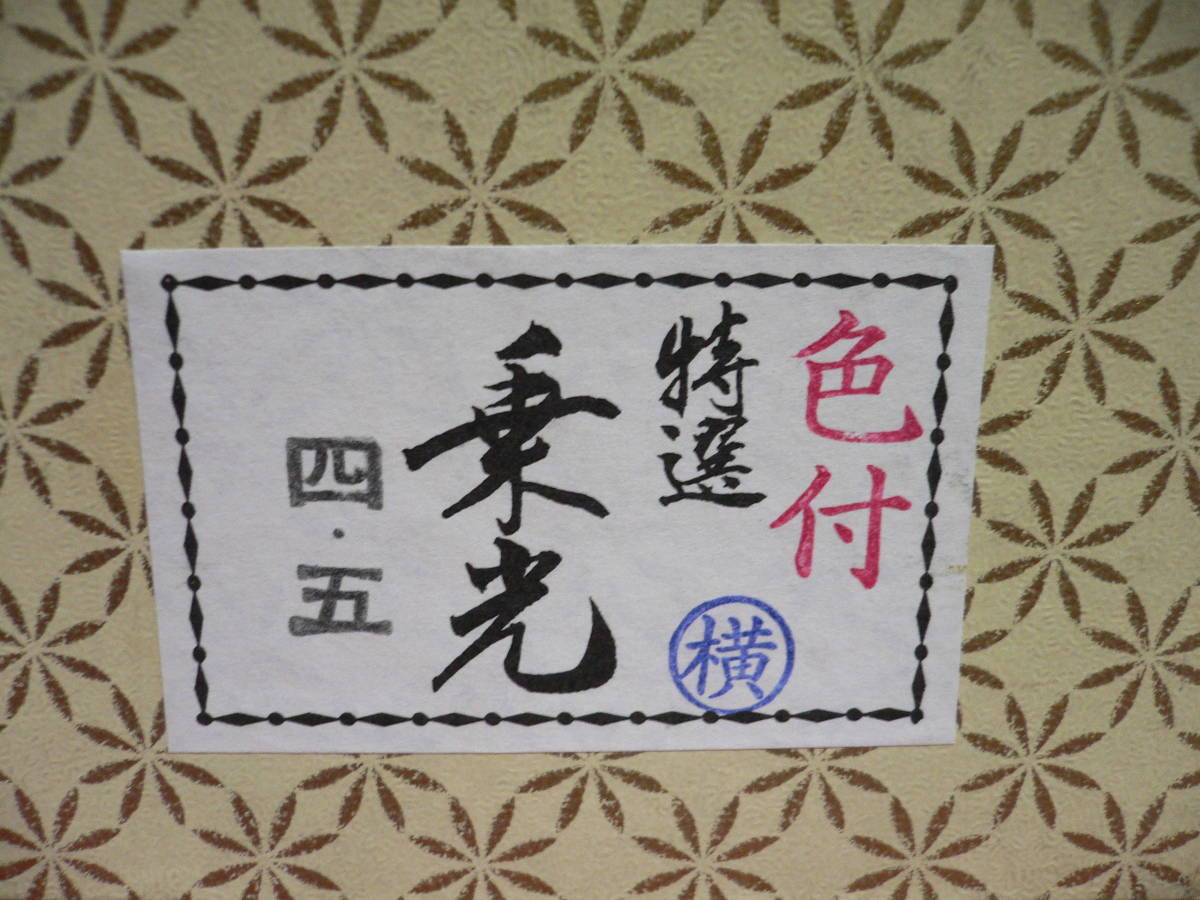 色付
特選
横
乗光
四・五